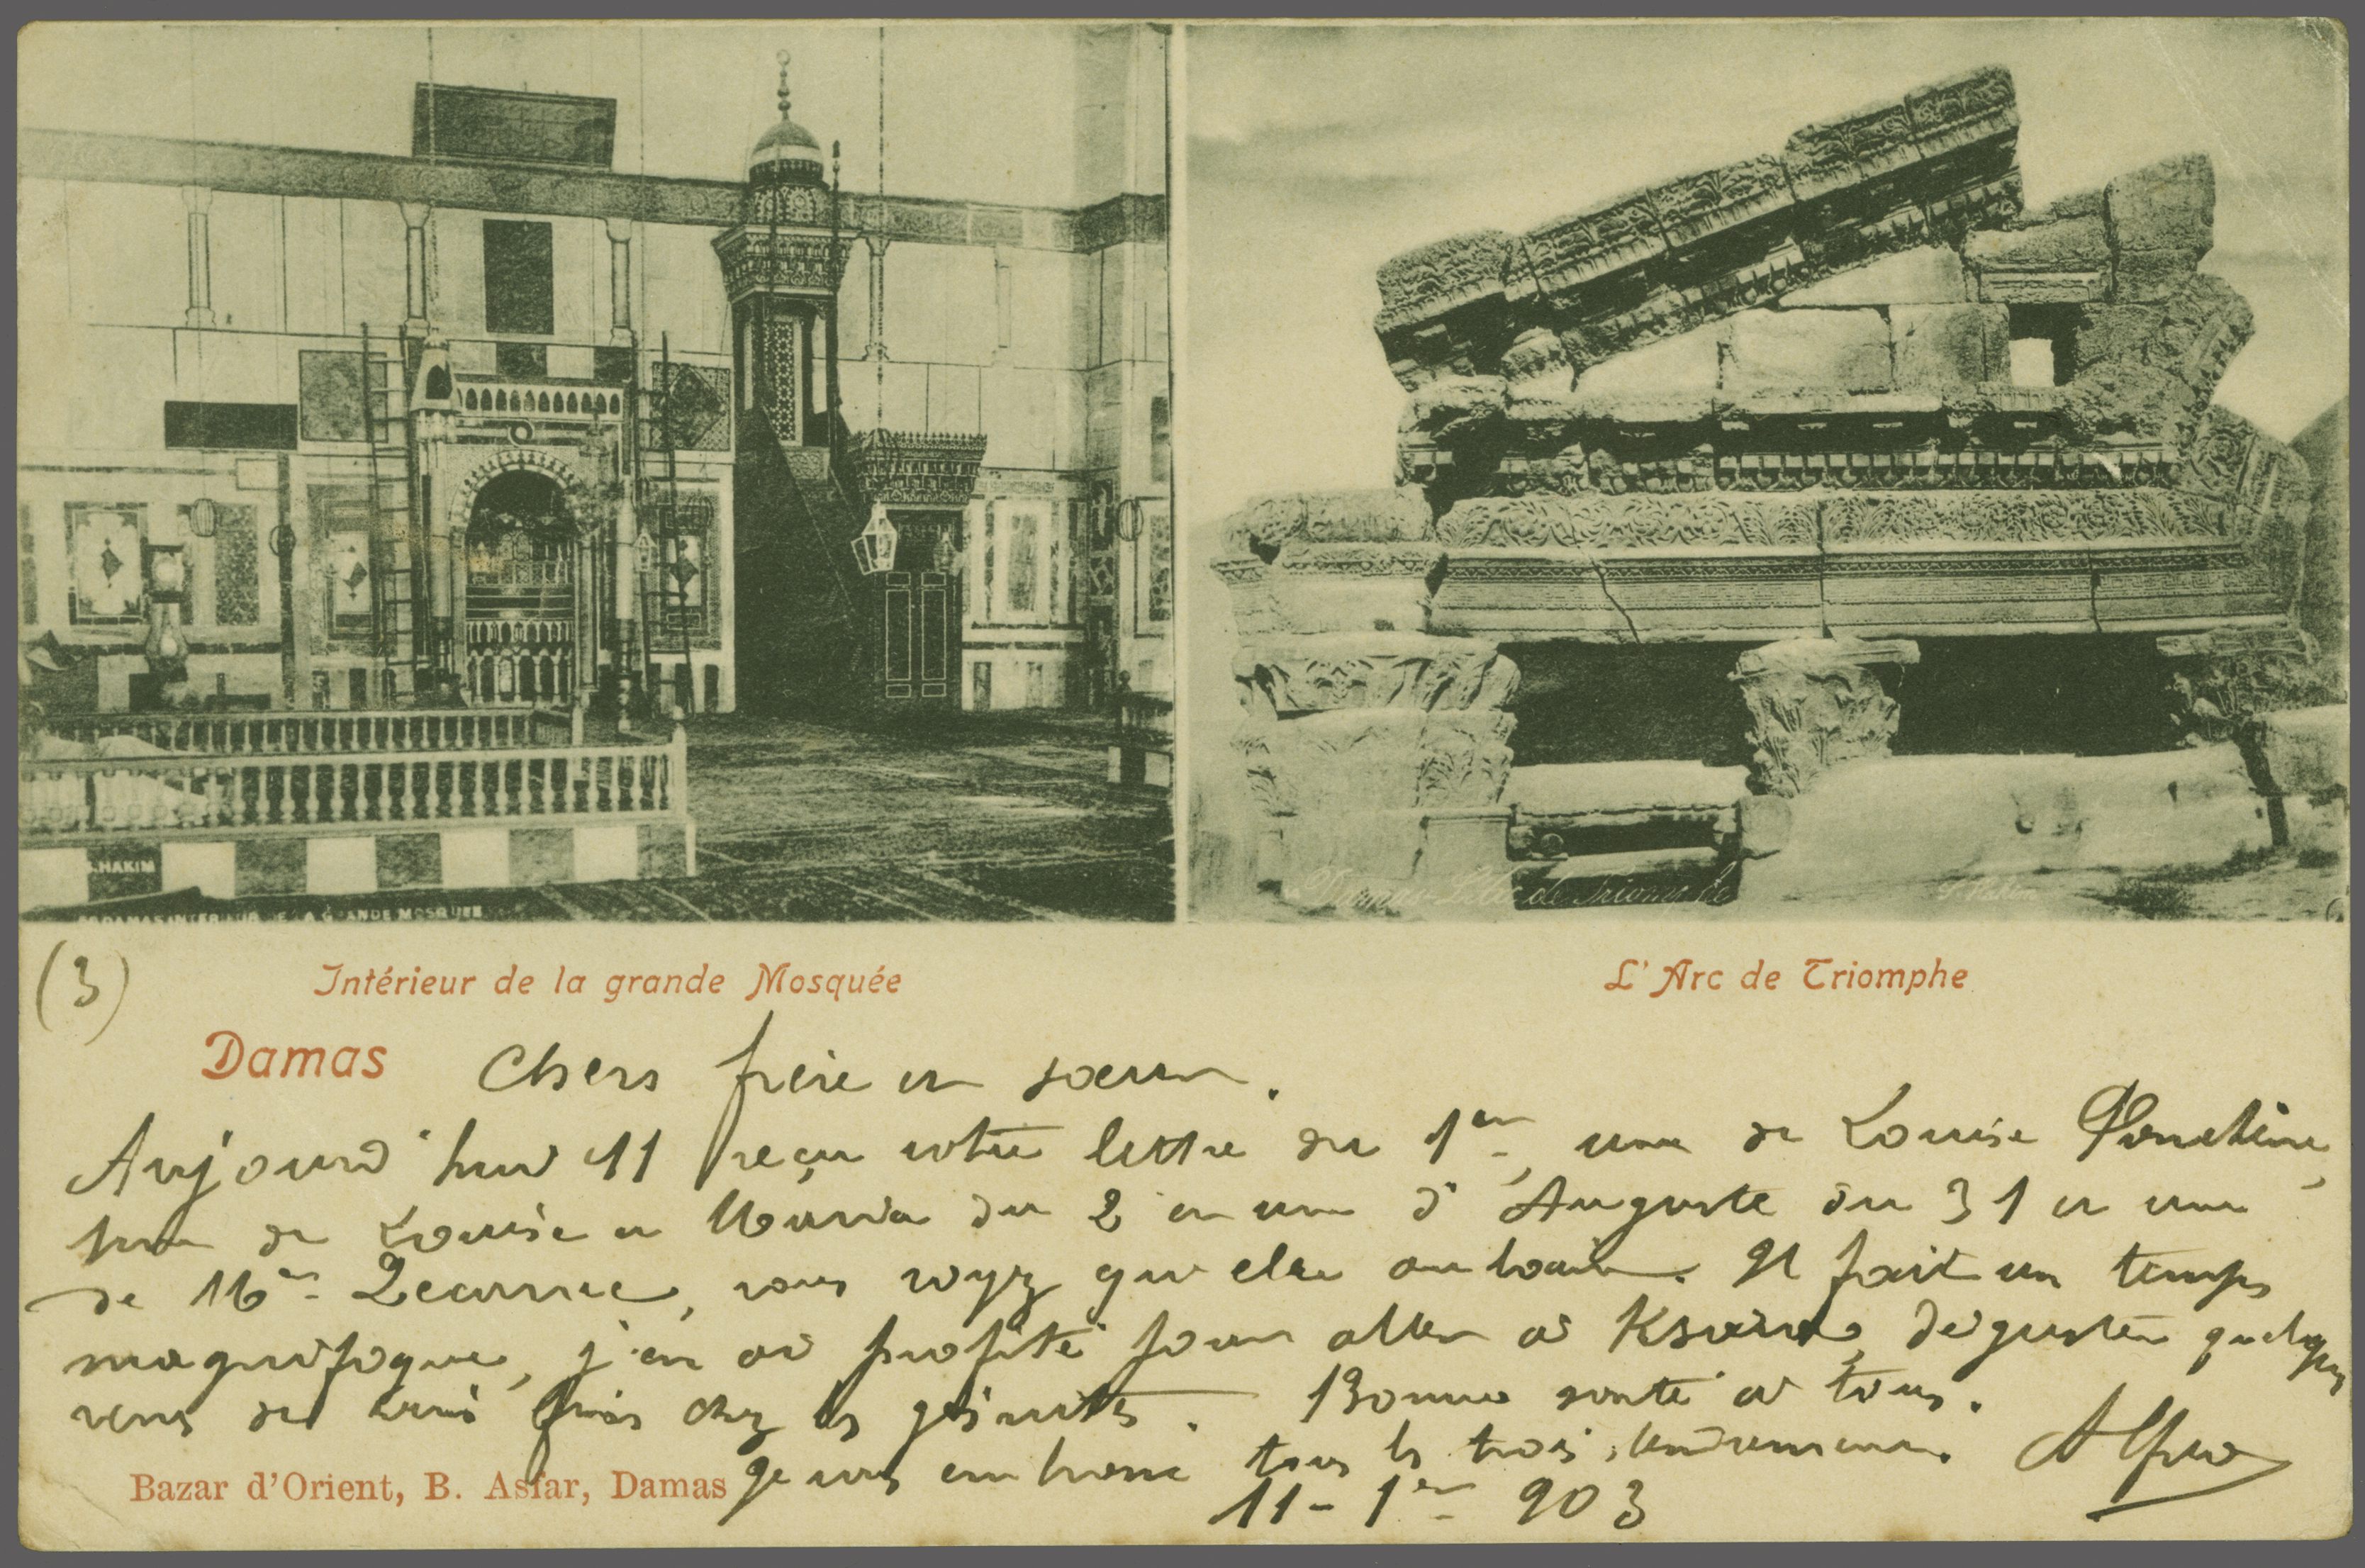 S.HAKIM
DAMAS INTERIEUR DE LA GRANDE MOSQUEE
Damas L'Arc de Triomphe
(3)
Intérieur de la grande Mosquée
L'Arc de Triomphe
Damas
Chers frère et sœur.
Aujourd'hui 11 reçu votre lettre du 1er, une de Louise
une de Louise et Maria du 2 et une d'Auguste du 31 et une
de vous voyez que Il fait un temps
magnifique, j'en ai profité pour aller à Ksara déguster quelques
vins du chez les jésuites. Bonne santé à tous.
Je vous embrasse tous les trois tendrement. Alfred
11 - 1er 903
Bazar d'Orient, B. Asfar, Damas